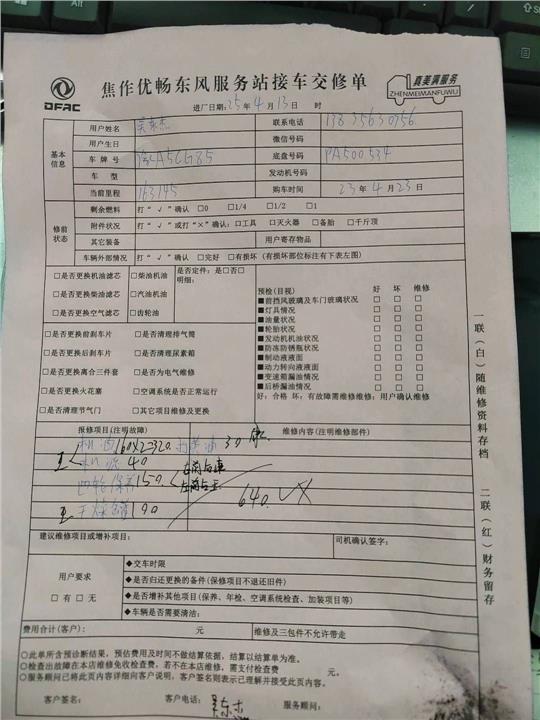 DFAC
焦作优畅东风服务站接车交修单
真美满服务
ZHENMEIMANFUWU
进厂日期: 25年 4 月 13日 时
基本信息
用户姓名 吴东杰 联系电话
用户生日 微信号码
车 牌 号 底盘号码 PA500534
车 型 发动机号码
当前里程 163145 购车时间 23 年 4 月 23 日
修前状态
剩余燃料 打“√”确认 □0 □1/4 □1/2 □1
附件状况 打“√”或打“×”确认: □工具 □灭火器 □备胎 □千斤顶
其它装备 用户寄存物品
车辆外部情况 打“√”确认 □完好 □有损坏 (有损坏部位标注有下表左图)
□是否更换机油滤芯 □柴油机油 是否定件: 是□否□
明细:
□是否更换柴油滤芯 □汽油机油
□是否更换空气滤芯 □齿轮油
□是否更换前刹车片 □是否清理排气筒
□是否更换后刹车片 □是否清理尿素箱
□是否更换离合三件套 □是否为电气维修
□是否更换火花塞 □空调系统是否正常运行
□是否清理节气门 □其它项目维修及更换
预检(目视) 好 坏 维修
■前挡风玻璃及车门玻璃状况 □ □ □
■灯具情况 □ □ □
■油量状况 □ □ □
■轮胎状况 □ □ □
■发动机机油状况 □ □ □
■防冻防锈瓶状况 □ □ □
■制动液液面 □ □ □
■动力转向液液面 □ □ □
■变速箱漏油情况 □ □ □
■后桥漏油情况 □ □ □
好: 合格 坏: 有故障需维修维修: 用户确认维修
报修项目(注明故障) 维修内容(注明维修部件)
机油 160X2=320 30
机滤 40
四轮保养 150
190
640
建议维修项目或增补项目: 司机确认签字:
用户要求
□ 有 □ 无
◆交车时限
◆是否归还更换的备件(保修项目不退还旧件)
◆是否增补其他项目(保养、年检、空调系统检查、加装项目等)
◆车辆是否需要清洁:
费用合计(客户): 元 维修及三包件不允许带走
○此单所含预诊断结果, 预估费用及时间不做结算依据, 结算以结算单为准。
○检查出故障在本店维修免收检查费, 若不在本店维修, 需支付检查费 元。
○服务顾问已将此页内容详细向客户说明, 客户签名则表示已理解并接受此页内容。
客户签名: 客户电话: 吴东杰 服务顾问:
一联(白)随维修资料存档 二联(红)财务留存